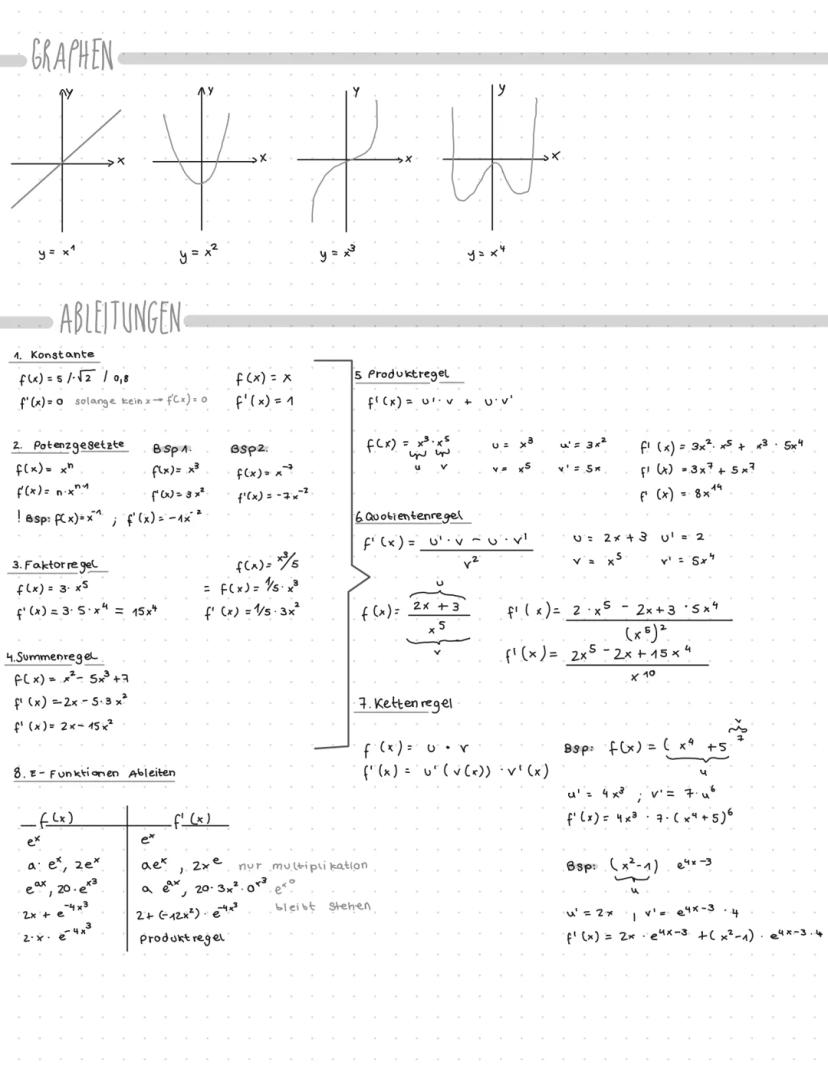 GRAPHEN
y
x
y = x¹
y
x
y = x²
y
x
y = x³
y
x
y = x⁴
ABLEITUNGEN
1. Konstante
f(x) = 5 / √2 / 0,8
f'(x) = 0 solange kein x → f(x) = 0
f(x) = x
f'(x) = 1
2. Potenzgesetzte
f(x) = xⁿ
f'(x) = n·xⁿ⁻¹
BSp1.
f(x) = x³
f'(x) = 3x²
BSp2.
f(x) = x⁻⁷
f'(x) = -7x⁻²
! Bsp: f(x) = x⁻¹ ; f'(x) = -1x⁻²
3. Faktorregel
f(x) = 3· x⁵
f'(x) = 3· 5· x⁴ = 15x⁴
f(x) = x³/5
= f(x) = 1/5 · x³
f'(x) = 1/5 · 3x²
4. Summenregel
f(x) = x² - 5x³ + 7
f'(x) = 2x - 5·3x²
f'(x) = 2x - 15x²
5 Produktregel
f'(x) = u'·v + u·v'
f(x) = x³·x⁵
u v
u = x³ u' = 3x²
v = x⁵ v' = 5x
f'(x) = 3x²·x⁵ + x³·5x⁴
f'(x) = 3x⁷ + 5x⁷
f'(x) = 8x¹⁴
6. Quotientenregel
f'(x) = u'·v - u·v' / v²
u = 2x + 3 u' = 2
v = x⁵ v' = 5x⁴
u
f(x) = 2x + 3 / x⁵
v
f'(x) = 2·x⁵ - 2x+3 · 5x⁴ / (x⁵)²
f'(x) = 2x⁵ - 2x + 15x⁴ / x¹⁰
7. Kettenregel
f(x) = u · v
f'(x) = u'(v(x)) · v'(x)
v
Bsp: f(x) = (x⁴ + 5)⁷
u
u' = 4x³ ; v' = 7·u⁶
f'(x) = 4x³ · 7·(x⁴+5)⁶
Bsp: (x²-1) e⁴ˣ⁻³
u
u' = 2x , v' = e⁴ˣ⁻³ · 4
f'(x) = 2x · e⁴ˣ⁻³ + (x²-1) · e⁴ˣ⁻³ · 4
8. E- Funktionen Ableiten
f(x) f'(x)
eˣ eˣ
a· eˣ, 2eˣ aeˣ , 2xe nur multiplikation
e^ax, 20·e^x³ a e^ax, 20·3x²·e^x³
bleibt stehen
2x + e^-4x³ 2+(-12x²)·e^-4x³
2·x· e^-4x³ Produktregel